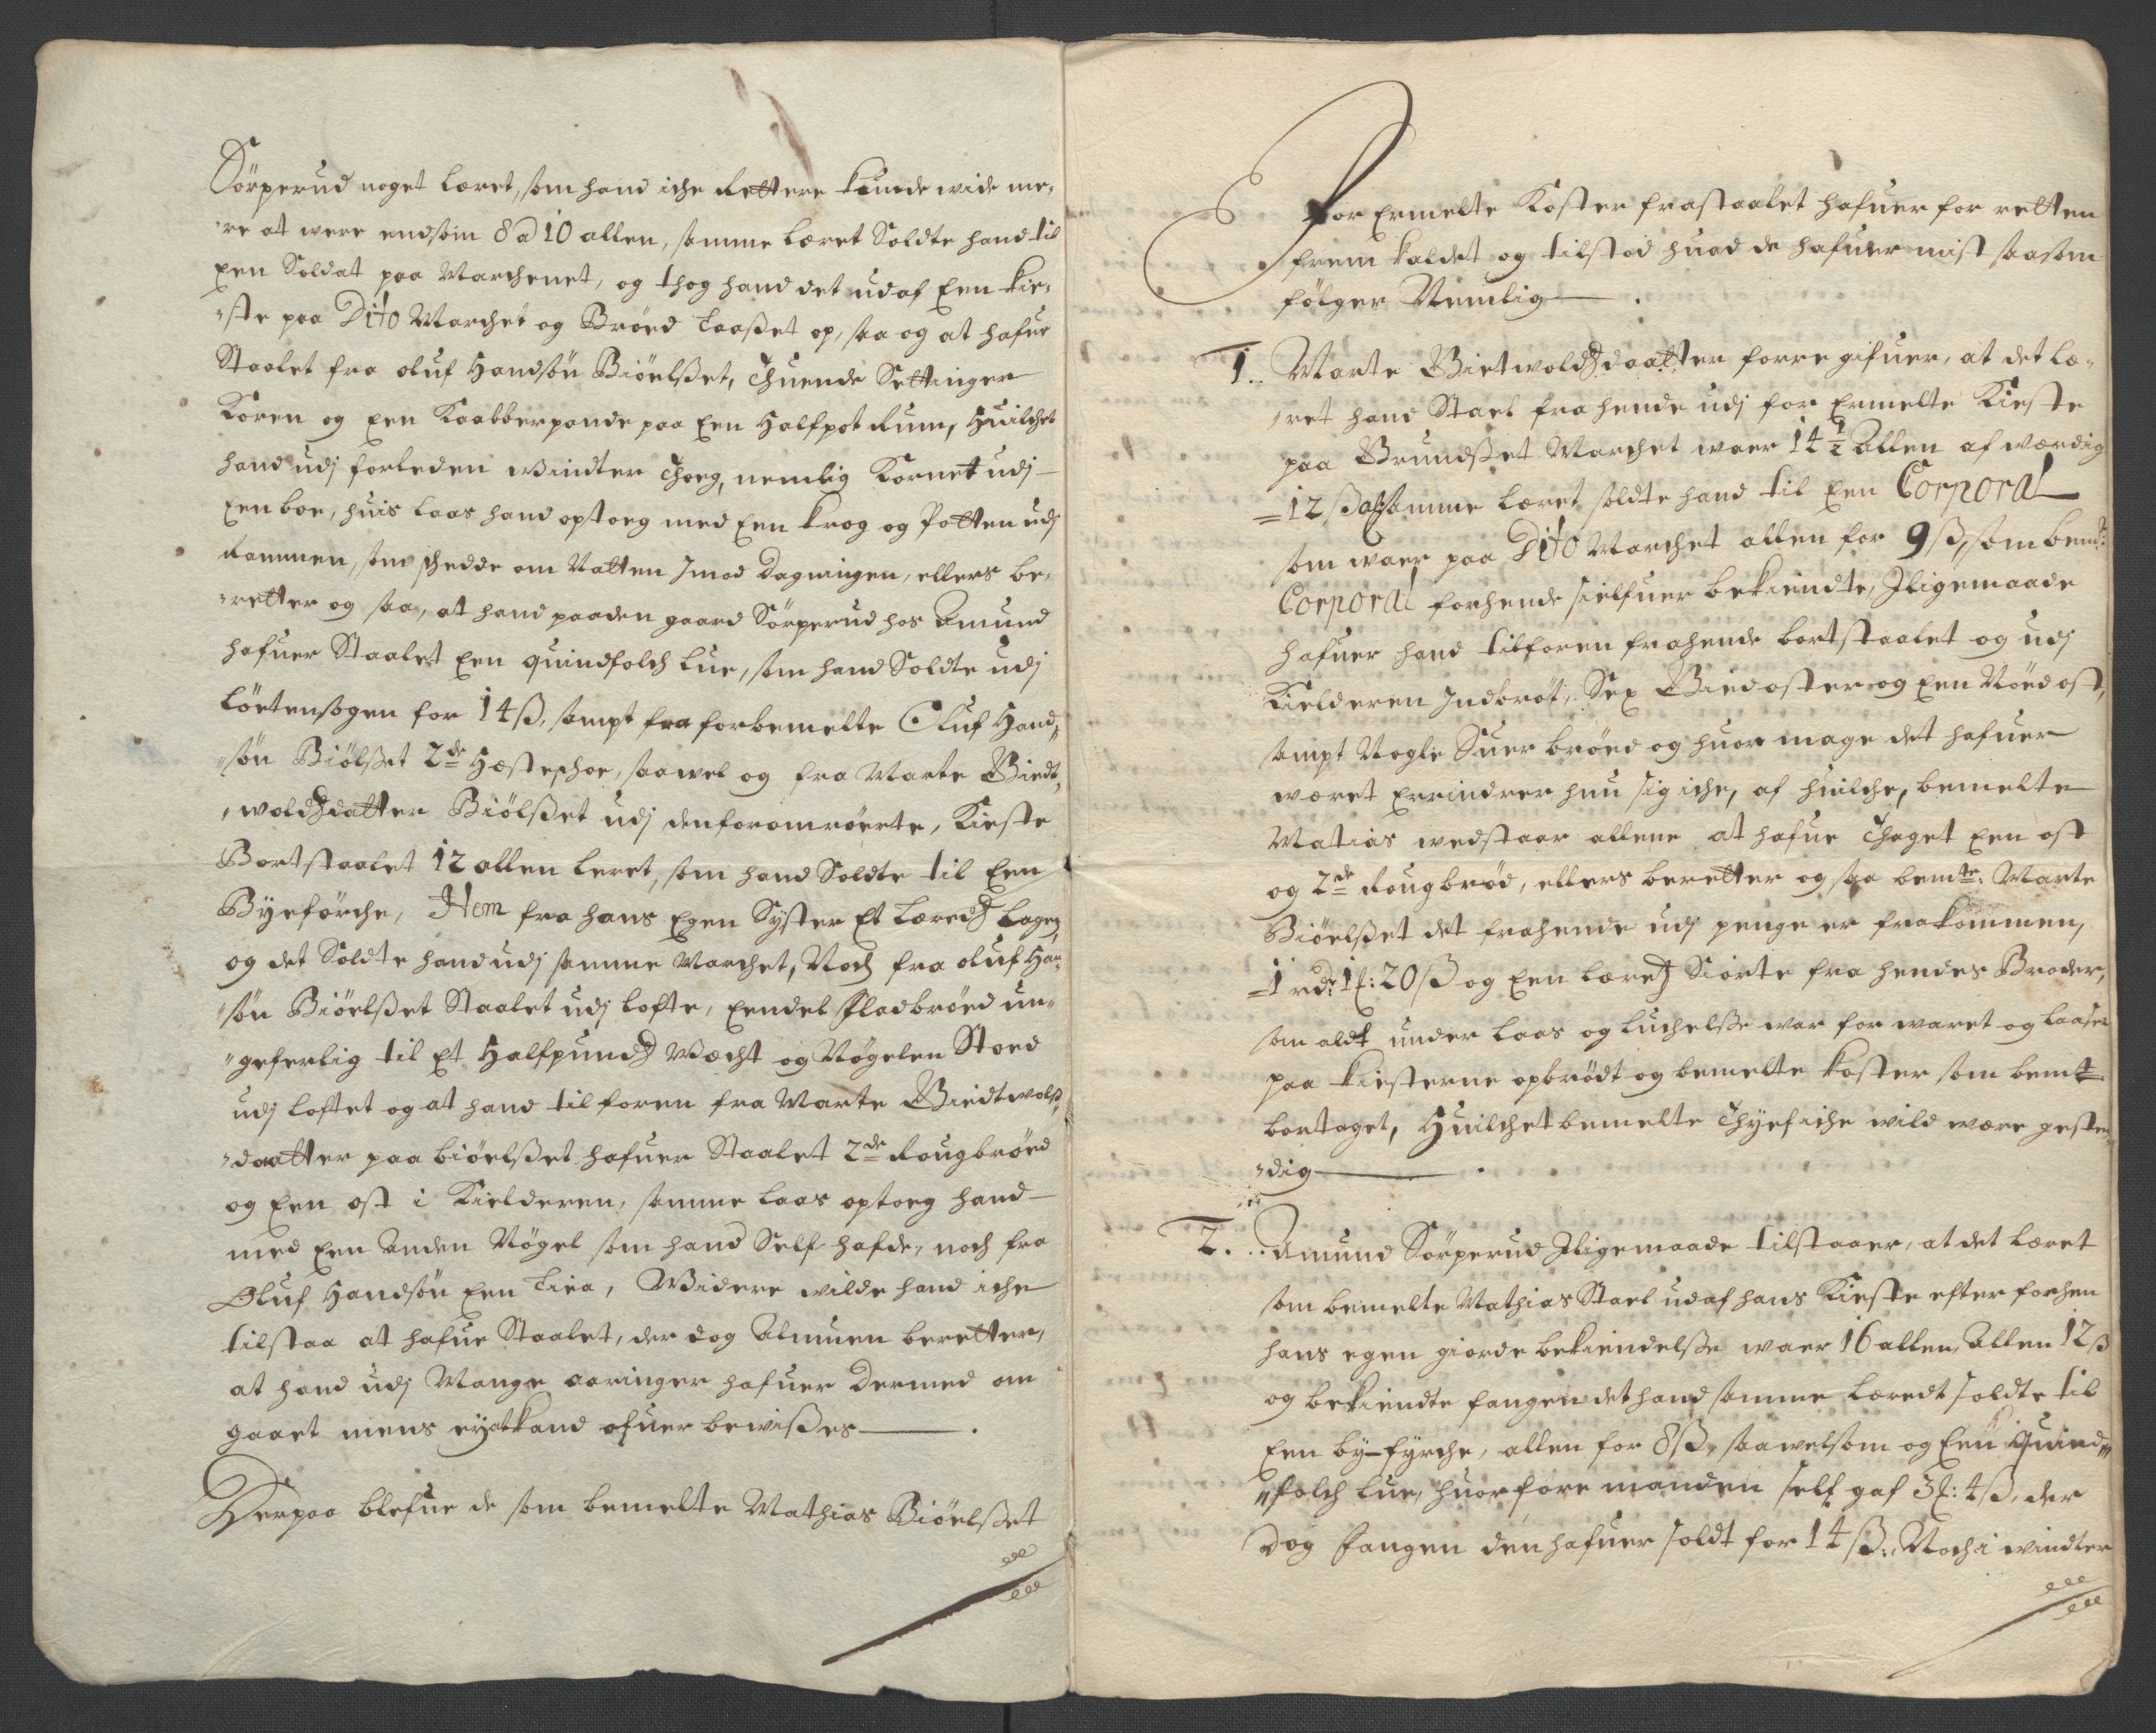 Sörperud noget læret, som hand iche Rettere kunde wide me,
re at were endsom 8 a 10 allen, samme læret Soldte hand til
een Soldat paa Marchenet, og thog hand det udaf Een kie,
ste paa Dito Marchet og Bröed Laaßet op, saa og at hafue
Staalet fra oluf Handsön Biöelßet, Thuende Settinger
Koren og een Kaabberpande paa Een Halfpot Rum, Huilchet
hand udj forleden Windter Thoeg, nemlig Kornet udj
Een boe, huis laas hand optoeg med Een krog og Potten udj
Rammen, som schedde om Natten Jmod Dagningen, ellers be,
retter og saa, at hand paa den gaard Sörperud hos Amund
hafuer Staalet Een quindfolch Lue, som hand Soldte udj
Löetensogen for 14 ß, sampt fra forbemelte Oluf Hand,
sön Biölßet 2de Hesteschoe, saawel og fra Marte Biedt,
woldsdatter Biölßet udj den foromröerte, Kieste
Bortstaalet 12 allen leret, som hand Soldte til Een
Byeförche, Item fra hans Egen Syster Et Læreds Lagen
og det Soldte hand udj samme Marchet, Noch fra oluf Han
sön Biöelßet Staalet udj lofte, Eendel Fladbröed un
geferlig til Et Halfpunds Wæcht og Nögelen Stoed
udj loftet og at hand tilforen fra Marte Biedtwolds
daatter paa biöelßet hafuer Staalet 2de Rougbröed
og Een ost i Kielderen, samme laas optoeg hand
med Een Anden Nögel som hand Self hafde, noch fra
Oluf Handsön Een Liea, Widere wilde hand iche
tilstaa at hafue Staalet, der dog Almuen beretter,
at hand udj Mange aaringer hafuer Dermed om
gaaet mens eyet kand ofuer bewißes
Herpaa blefue de som bemelte Mathias Biöelßet
For Ermelte Koster frastaalet hafuer for retten
frem kaldet og tilstod huad de hafuer mist saasom
fölger Nemlig
1. Marte Bietwoldsdaatter forregifuer, at det læ,
ret hand Stael fra hende udj for Ermelte Kieste
paa Grundßet Marchet waer 14 1/2 Allen af wærdig
12 ß samme læret soldte hand til Een Corporal
som waer paa Dito Marchet allen for 9 ß, som bemte
Corporal for hende sielfuer bekiendte, Jligemaade
hafuer hand tilforen fra hende bortstaalet og udj
Kielderen Jndbröt, Sex Giedoster og Een Nöedost,
sampt Nogle Suer bröed og huor mage det hafuer
wæret Errindrer hun sig iche, af huilche, bemelte
Matias wedstaar allene at hafue Thaget Een ost
og 2de Rougbröd, ellers beretter og saa bemte: Marte
Biöelßet det fra hende udj penge er frakommen,
1 rdr 1 : 20 ß og Een læreds Siorte fra hendes Broder,
som aldt under laas og Luchelße war for waret og laasen
paa kiesterne opbrödt og bemelte koster som bemt
bortaget, Huilchet bemelte Thyef iche wild were gesten
dig
2. Amund Sörperud Jligemaade tilstaaer, at det læret
som bemelte Mathias Stael udaf hans Kieste efter forhen
hans egen giorde bekiendelße waer 16 allen, Allen 12 ß
og bekiendte fangen det hand samme læredt soldte til
Een by-fyrche, allen for 8 ß, saawelsom og Een Quind
folch Lue, huorfore manden self gaf 3 : 4 ß, der
dog fangen den hafuer soldt for 14 ß: Noch i windter